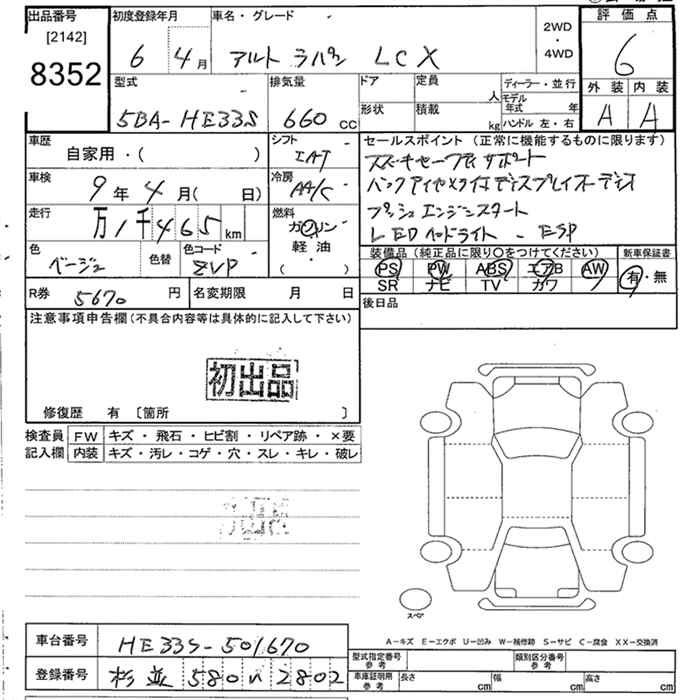 出品番号 [2142] 8352
初度登録年月 6年 4月
車名・グレード アルト ラパン LCX
2WD・4WD
評価点 6
外装 A 内装 A
型式 5BA-HE33S
排気量 660 CC
ドア 形状
定員 人 積載 kg
ディーラー・並行
モデル年式 年
ハンドル 左・右
車歴 自家用・( )
シフト IAT
車検 9年4月( 日)
冷房 AA/C
走行 万1千465 km
燃料 ガソリン 軽油 ( )
色 ベージュ 色替 色コード ZVP
セールスポイント(正常に機能するものに限ります)
スズキセーフティサポート
バックアイカメラ付ディスプレイオーディオ
プッシュエンジンスタート
LEDヘッドライト - ESP
装備品(純正品に限り〇をつけてください) 新車保証書
PS PW ABS エアB AW 有・無
SR ナビ TV カワ
R券 5670 円 名変期限 月 日
後日品
注意事項申告欄(不具合内容等は具体的に記入して下さい)
初出品
修復歴 有 〔箇所 〕
検査員記入欄 FW キズ・飛石・ヒビ割・リペア跡・×要
内装 キズ・汚レ・コゲ・穴・スレ・キレ・破レ
スペア
A-キズ E-エクボ U-凹み W-補修跡 S-サビ C-腐食 XX-交換済
車台番号 HE33S-501670
型式指定番号 参考 類別区分番号 参考
登録番号 杉並 580 い 2802
車庫証明用 参考 長さ cm 幅 cm 高さ cm